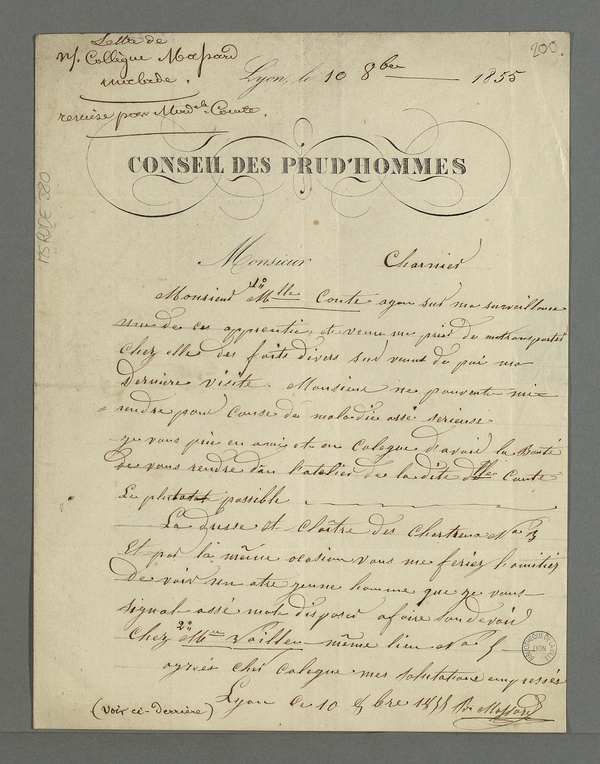 Lettre de
n/. Collègue Massard
malade.
remise par Mad.lle Conte.
200.
Lyon, le 10 8bre 1855
CONSEIL DES PRUD'HOMMES
MS RUDE 380
Monsieur Charnier
Monsieur 1° Mlle Conte ayan sur ma surveillance
une de ces apprentie, et venu me prier de me transporter
chez elle des faits divers sur venut de puis ma
Dernière visite. Monsieur ne pouvent mi
= rendre pour cause de maladie assé serieuse
je vous prie en ami et en Colegue d'avoir la Bonté
de vous rendre dan l'atelier de la dite Dlle Conte
Le plutot possible
La dresse et cloître des Chartreux No 3
Et par la même ocasion vous me feriez l'amitiez
De voir un otre jeune homme que je vous
signal assé mal disposer a faire son devoir
Chez 2° Mme Vaillen même lieu No 5
agréer cher colegue mes salutations empressés
Lyon ce 10 8bre 1855 Massard
(voir ci-derrière)
BIBLIOTHEQUE DE LA VILLE
LYON